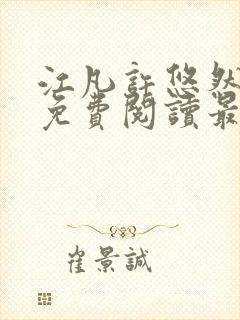 江凡許悠然
免費閱讀最
崔景誠